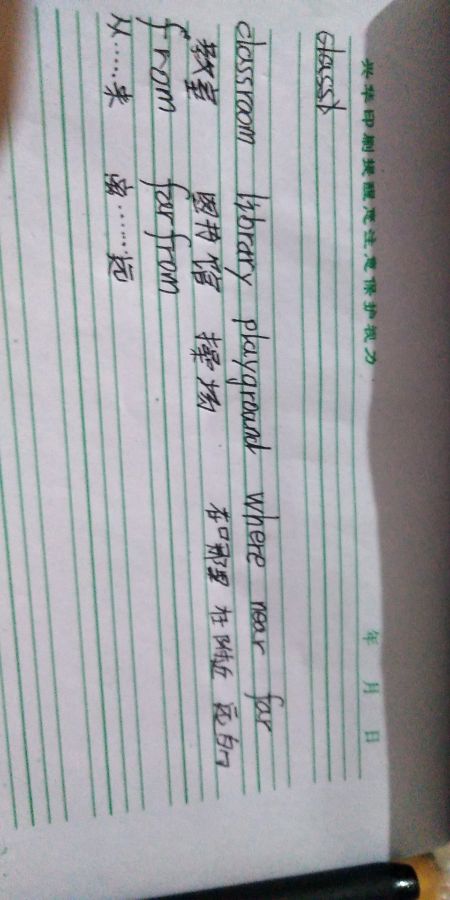 兴华印刷提醒您注意保护视力 年 月 日
classroom library playground where near far
教室 图书馆 操场 在哪里 在附近 远的
from far from
从……来 离……远